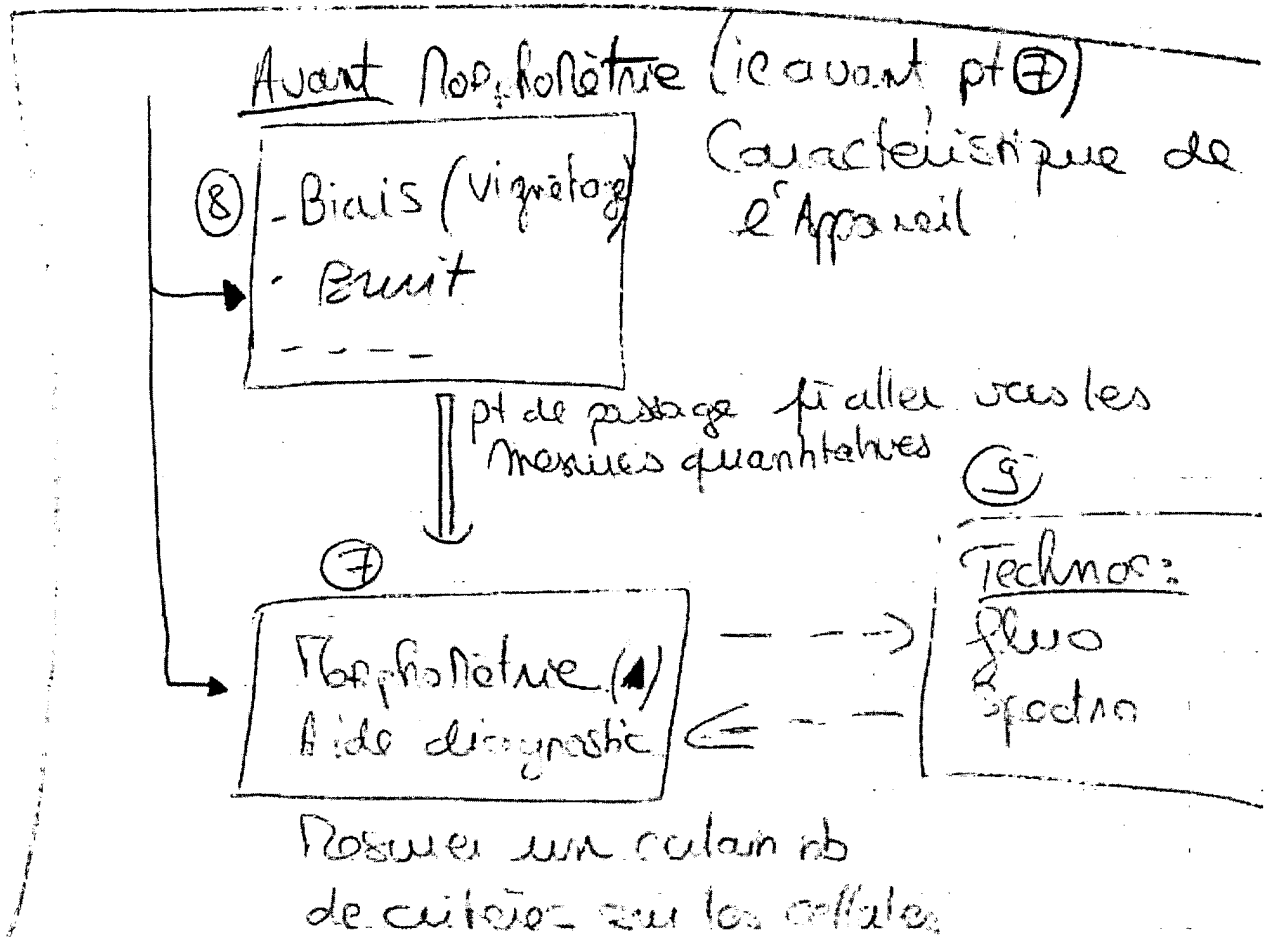 Avant MorphoMètrie (ie avant pt ⑦)
Caractéristique de
l'Appareil
⑧
- Biais (Vignètage)
- Bruit
- - - -
pt de passage pr aller vers les
mesures quantitatives
⑦
MorphoMètrie
Aide diagnostic
⑨
Technos:
fluo
Spectro
Mesurer un certain nb
de critères sur les cellules